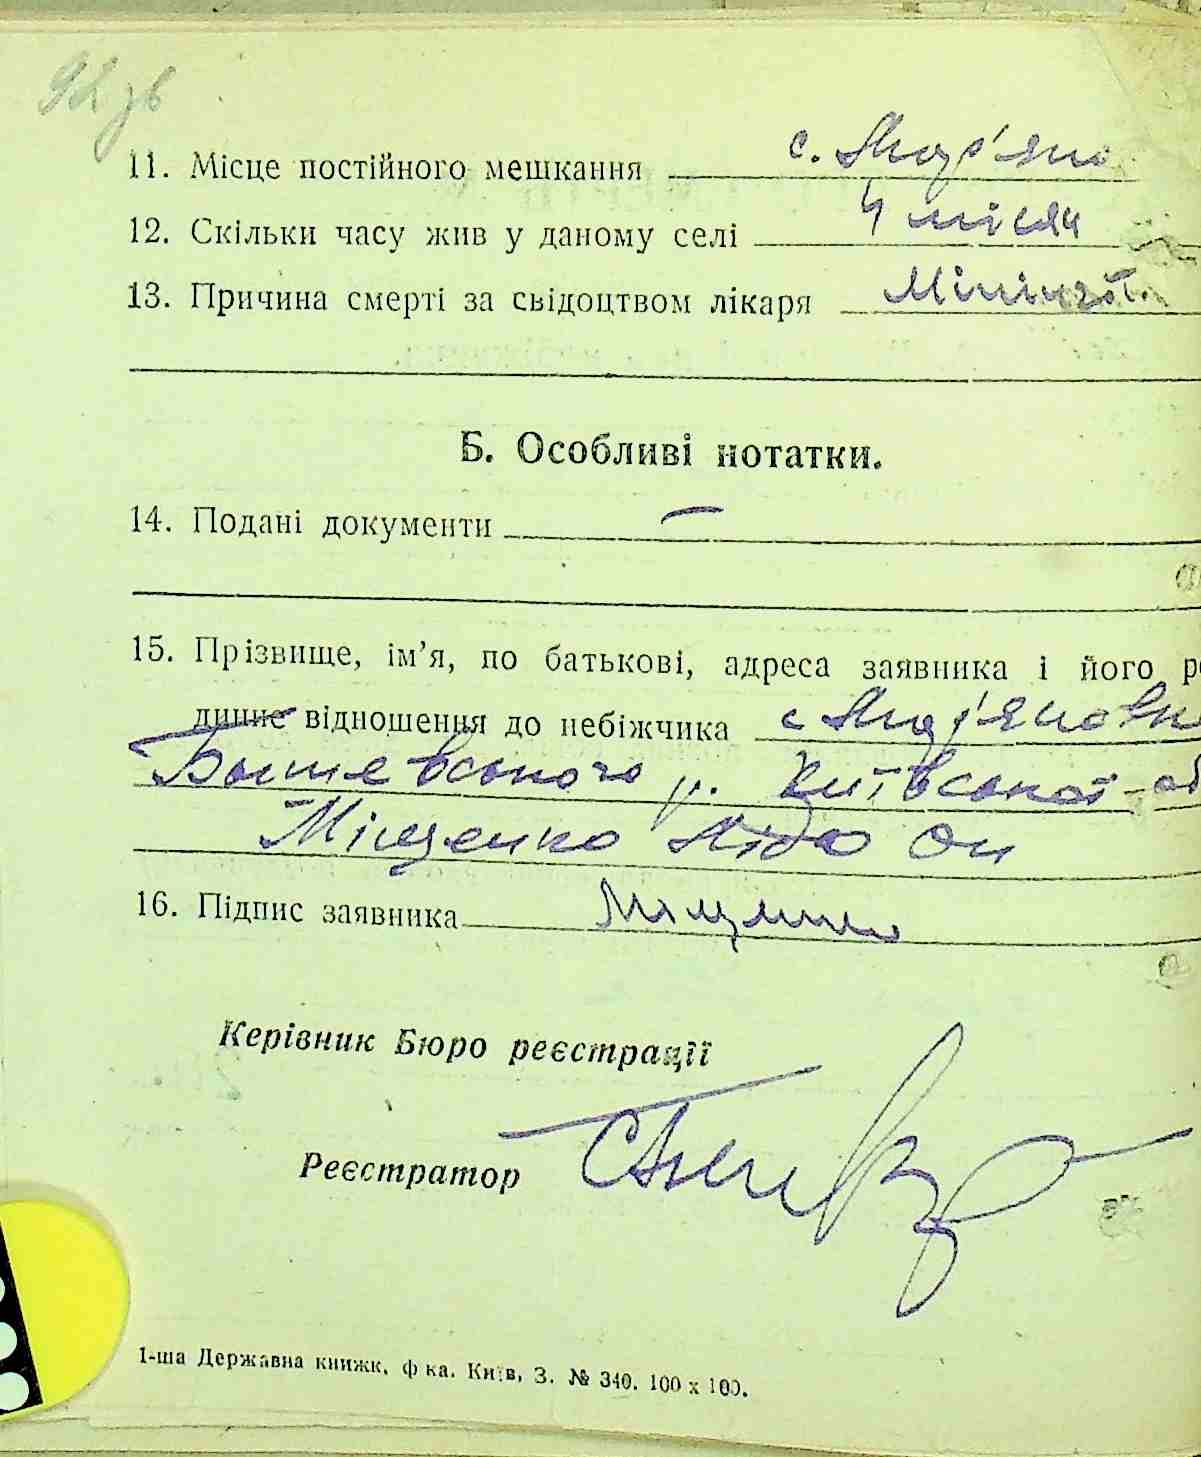 92 зв
11. Місце постійного мешкання с. Анд'ян
12. Скільки часу жив у даному селі 4 місяч
13. Причина смерті за свідоцтвом лікаря Мінінгіт
Б. Особливі нотатки.
14. Подані документи —
15. Прізвище, ім'я, по батькові, адреса заявника і його ро
динне відношення до небіжчика с
р. Київської об
Міщенко
16. Підпис заявника
Керівник Бюро реєстрації
Реєстратор
1-ша Державна книжк. ф-ка. Київ, З. № 340. 100 х 100.